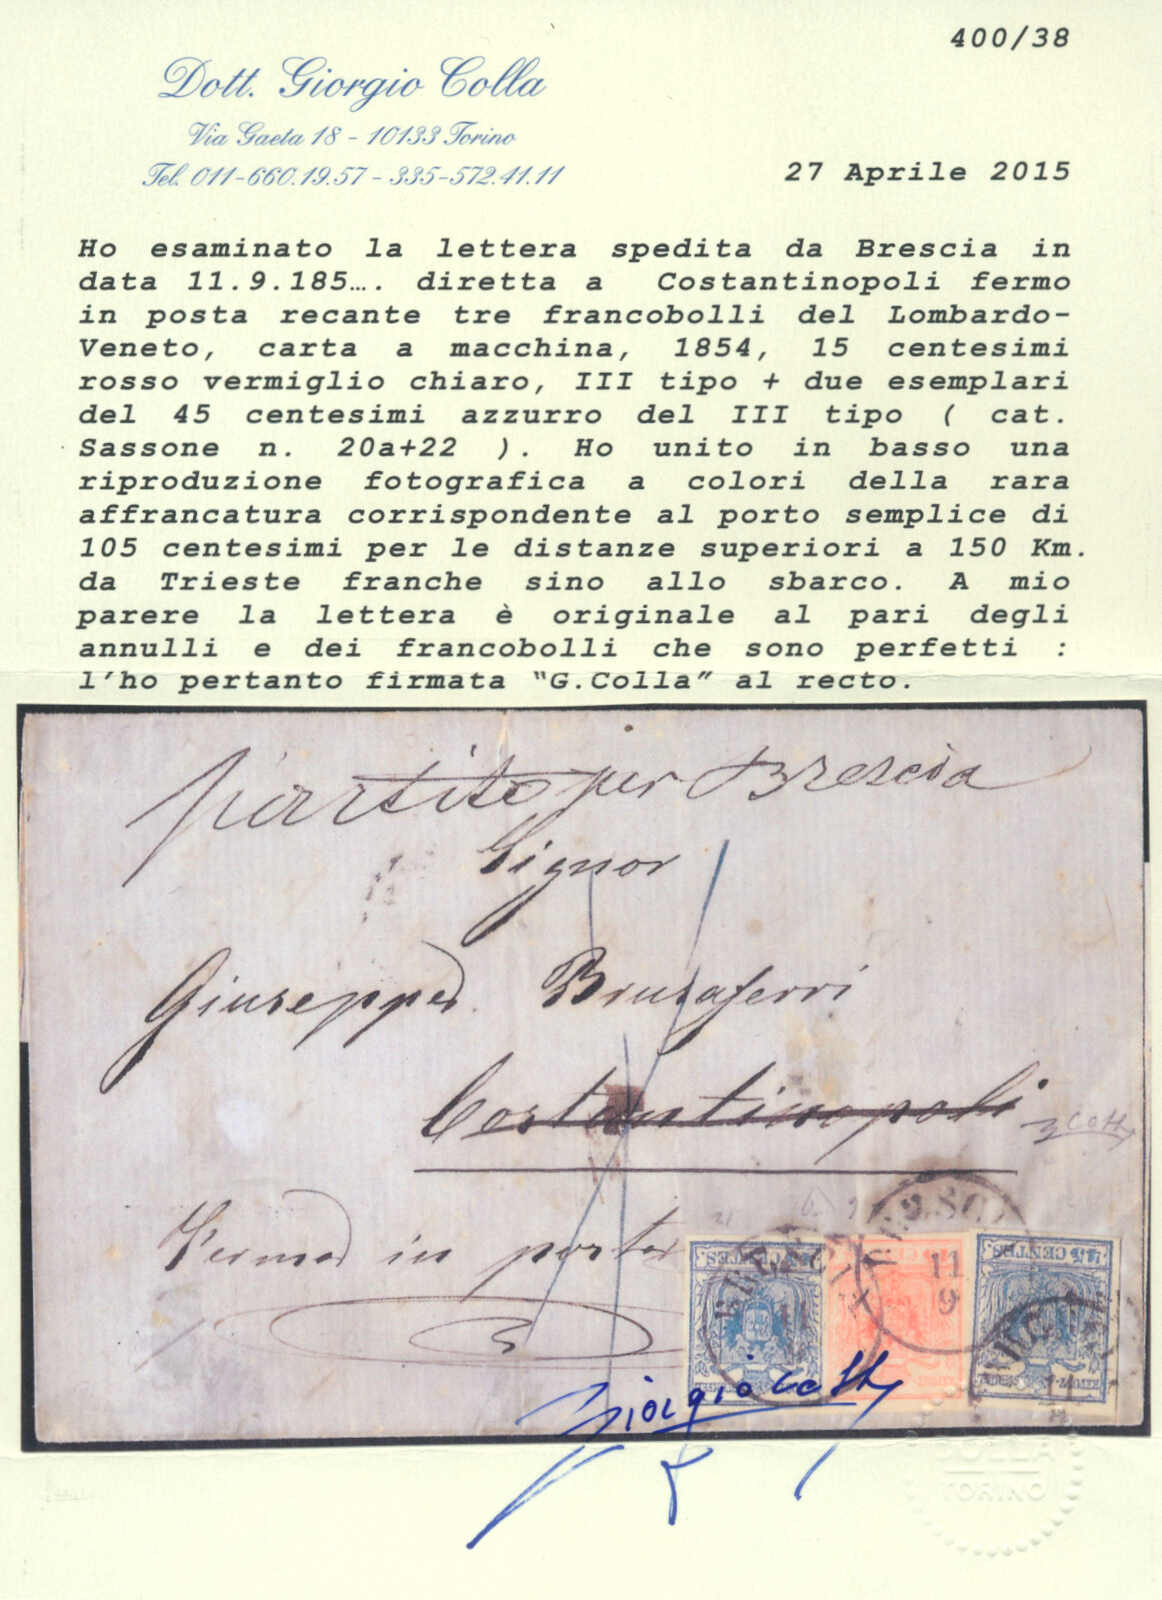 400/38
Dott. Giorgio Colla
Via Gaeta 18 - 10133 Torino
Tel. 011-660.19.57 - 335-572.41.11
27 Aprile 2015
Ho esaminato la lettera spedita da Brescia in
data 11.9.185…. diretta a Costantinopoli fermo
in posta recante tre francobolli del Lombardo-
Veneto, carta a macchina, 1854, 15 centesimi
rosso vermiglio chiaro, III tipo + due esemplari
del 45 centesimi azzurro del III tipo ( cat.
Sassone n. 20a+22 ). Ho unito in basso una
riproduzione fotografica a colori della rara
affrancatura corrispondente al porto semplice di
105 centesimi per le distanze superiori a 150 Km.
da Trieste franche sino allo sbarco. A mio
parere la lettera è originale al pari degli
annulli e dei francobolli che sono perfetti :
l'ho pertanto firmata “G.Colla” al recto.
per Brescia
Signor
Giuseppe Brusaferri
Costantinopoli
G Colla
Ferma in posta
45 CENTES.
CENTES.
45 CENTES.
BRESCIA
11
9
Giorgio Colla
COLLA
TORINO